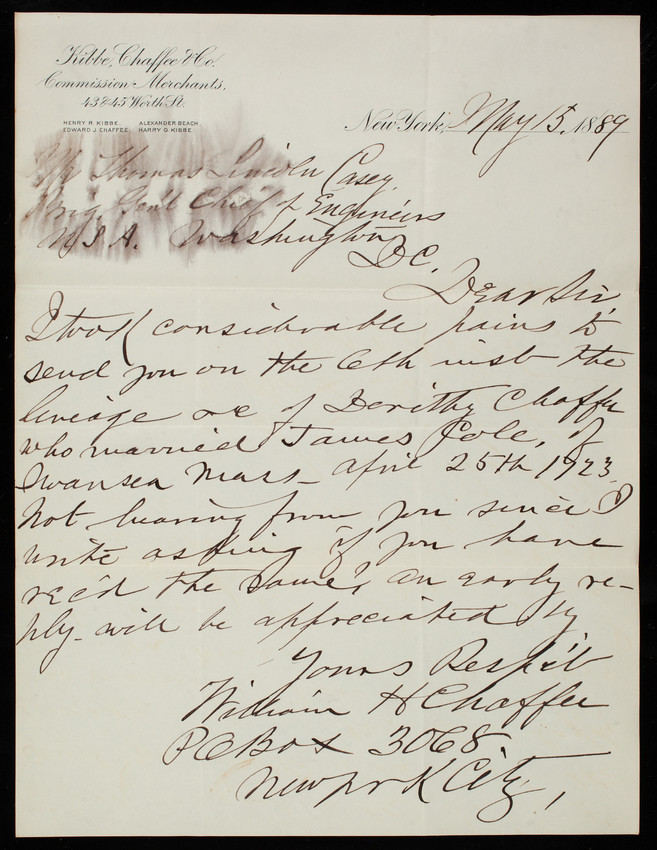 Kibbe, Chaffee & Co.
Commission Merchants,
43 & 45 Worth St.
HENRY R. KIBBE. ALEXANDER BEACH.
EDWARD J. CHAFFEE. HARRY G. KIBBE.
New York, May 15, 1889
Mr Thomas Lincoln Casey,
Brig. Genl Chief of Engineers
U S A. Washington
D C.
Dear Sir,
I took considerable pains to
send you on the 6th inst the
lineage &c of Dorithy Chaffee
who married James Cole, of
Swansea Mass - April 25th 1723.
Not hearing from you since I
write asking if you have
rec'd the same, an early re-
ply will be appreciated by
Yours Resp't
William H Chaffee
P O Box 3068
New York City,